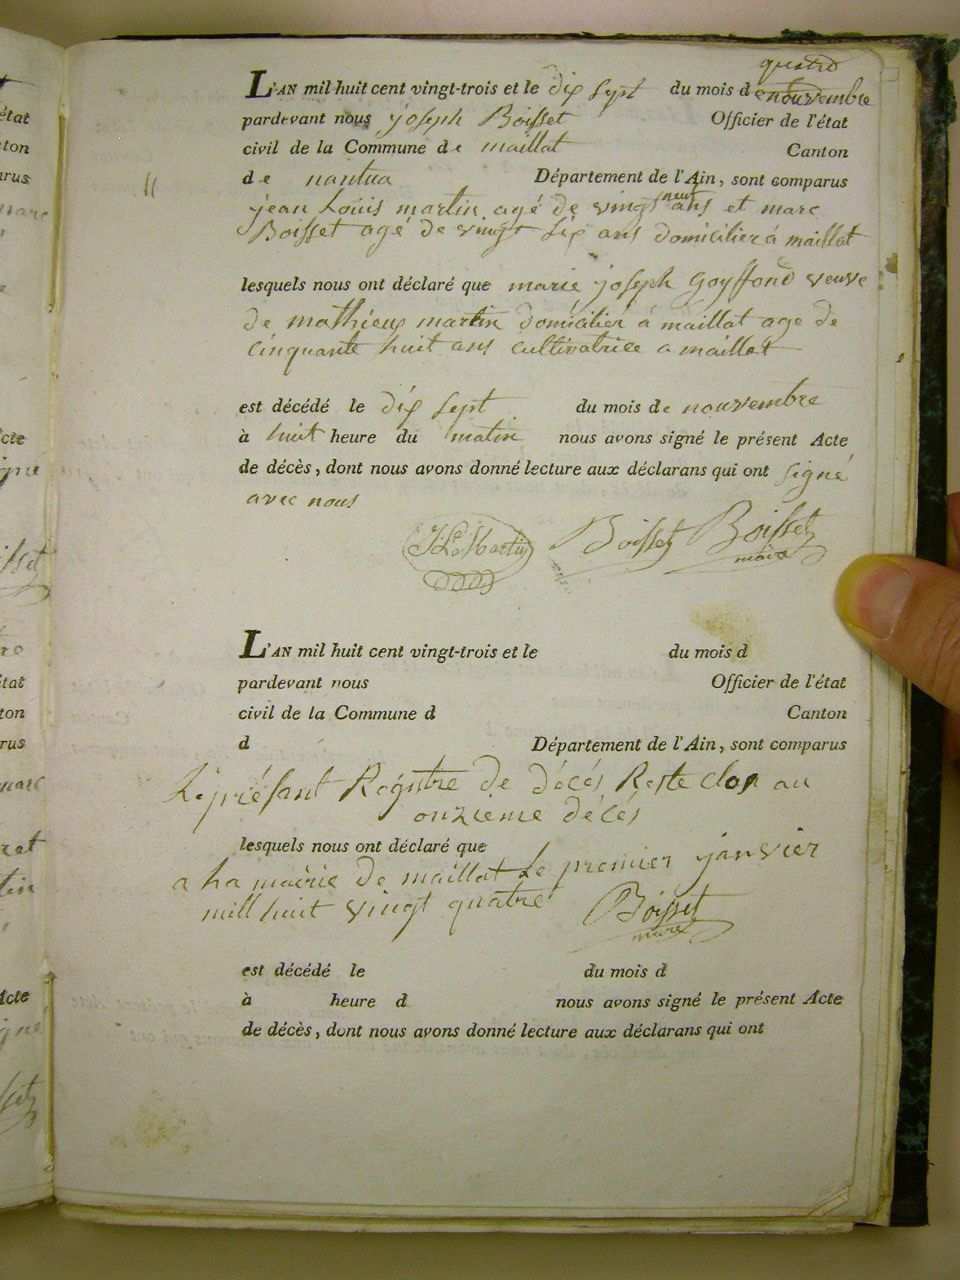 quatre
L'AN mil huit cent vingt-trois et le dix sept du mois de nouvembre
pardevant nous joseph Boisset Officier de l'état
civil de la Commune de maillat Canton
11 de nantua Département de l'Ain, sont comparus
jean Louis martin agé de vingt neuf ans et marc
Boisset agé de vingt six ans domicilier á maillat
lesquels nous ont déclaré que marie joseph goyffond veuve
de mathieux martin domicilier á maillat age de
cinquante huit ans cultivatrice a maillat
est décédé le dix sept du mois de nouvembre
à huit heure du matin nous avons signé le présent Acte
de décès, dont nous avons donné lecture aux déclarans qui ont signé
avec nous
J L Martin Boisset Boisset
maire
L'AN mil huit cent vingt-trois et le du mois d
pardevant nous Officier de l'état
civil de la Commune d Canton
d Département de l'Ain, sont comparus
Le présant Régistre de décés Reste clos au
onzieme décés
lesquels nous ont déclaré que
a La mairie de maillat Le premier janvier
mill huit vingt quatre Boisset
maire
est décédé le du mois d
à heure d nous avons signé le présent Acte
de décès, dont nous avons donné lecture aux déclarans qui ont